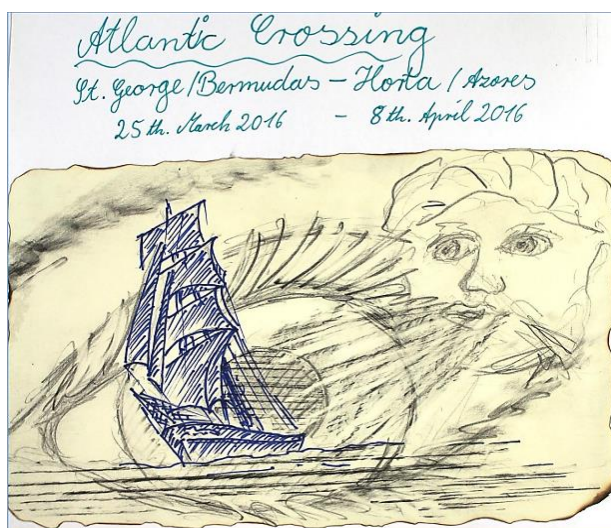 Atlantic Crossing
St. George/Bermudas - Horta / Azores
25th. March 2016 - 8th. April 2016